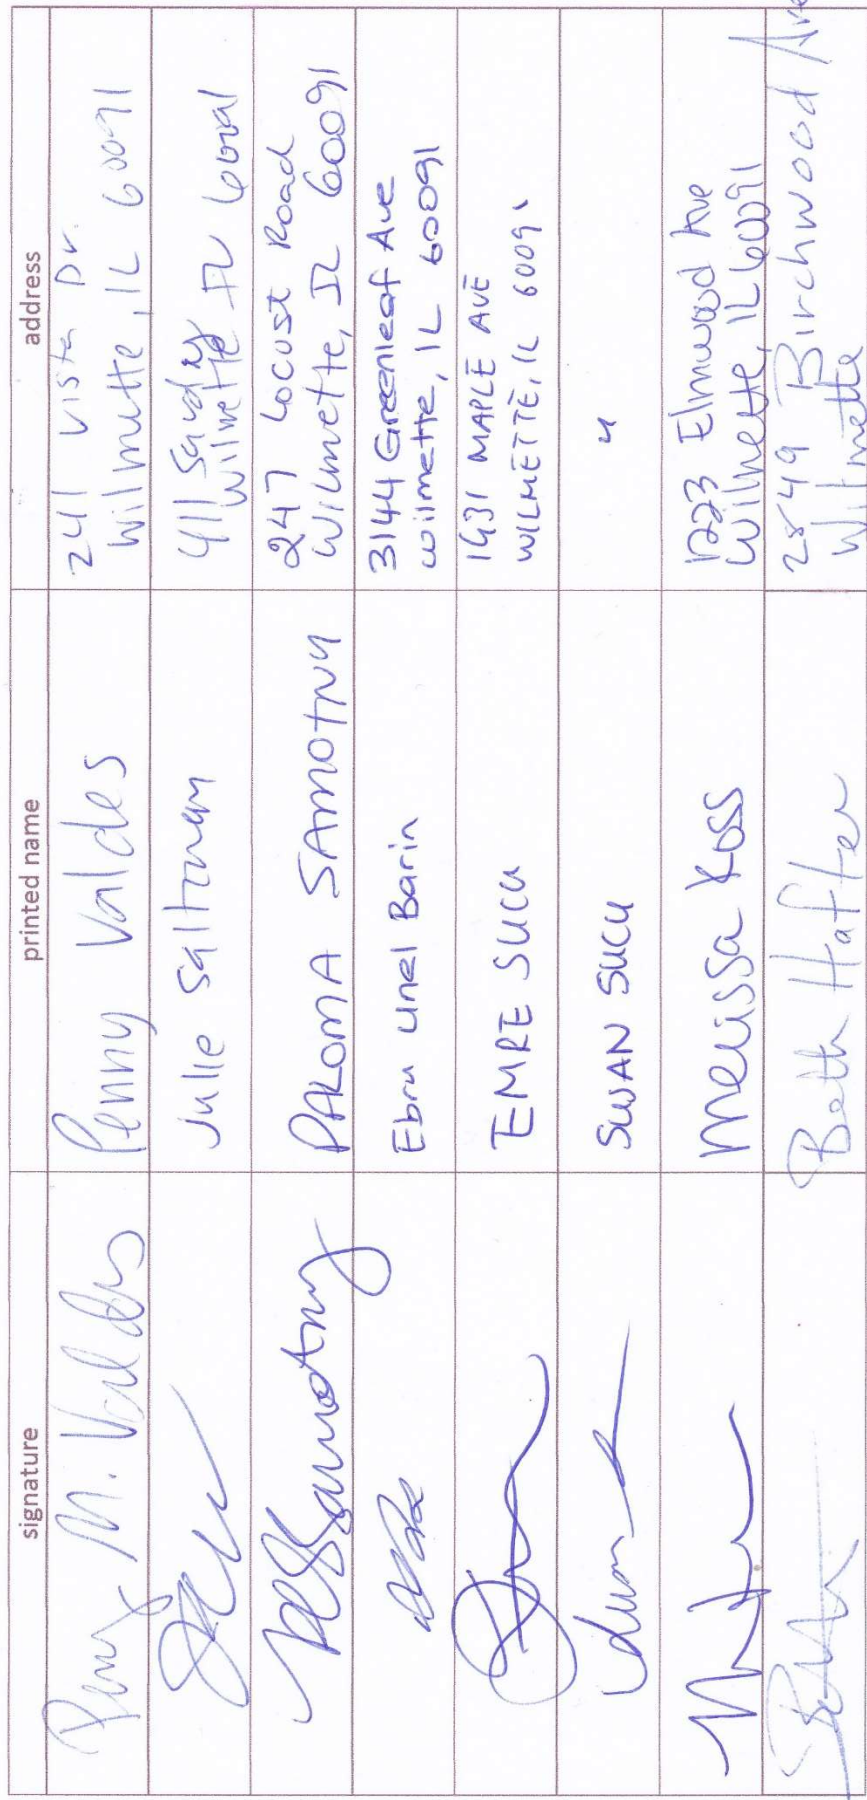 signature printed name address
Penny M. Valdes Penny Valdes 241 Vista Dr.
Wilmette, IL 60091
Julie Saltzman 411 Sandy
Wilmette IL 60091
Samotny PALOMA SAMOTNY 247 Locust Road
Wilmette, IL 60091
Ebru Unel Barin 3144 Greenleaf Ave
Wilmette, IL 60091
EMRE SUCU 1431 MAPLE AVE
WILMETTE, IL 60091
SUCU "
Melissa Koss 1223 Elmwood Ave
Wilmette, IL 60091
Beth Hafter 2549 Birchwood Ave
Wilmette